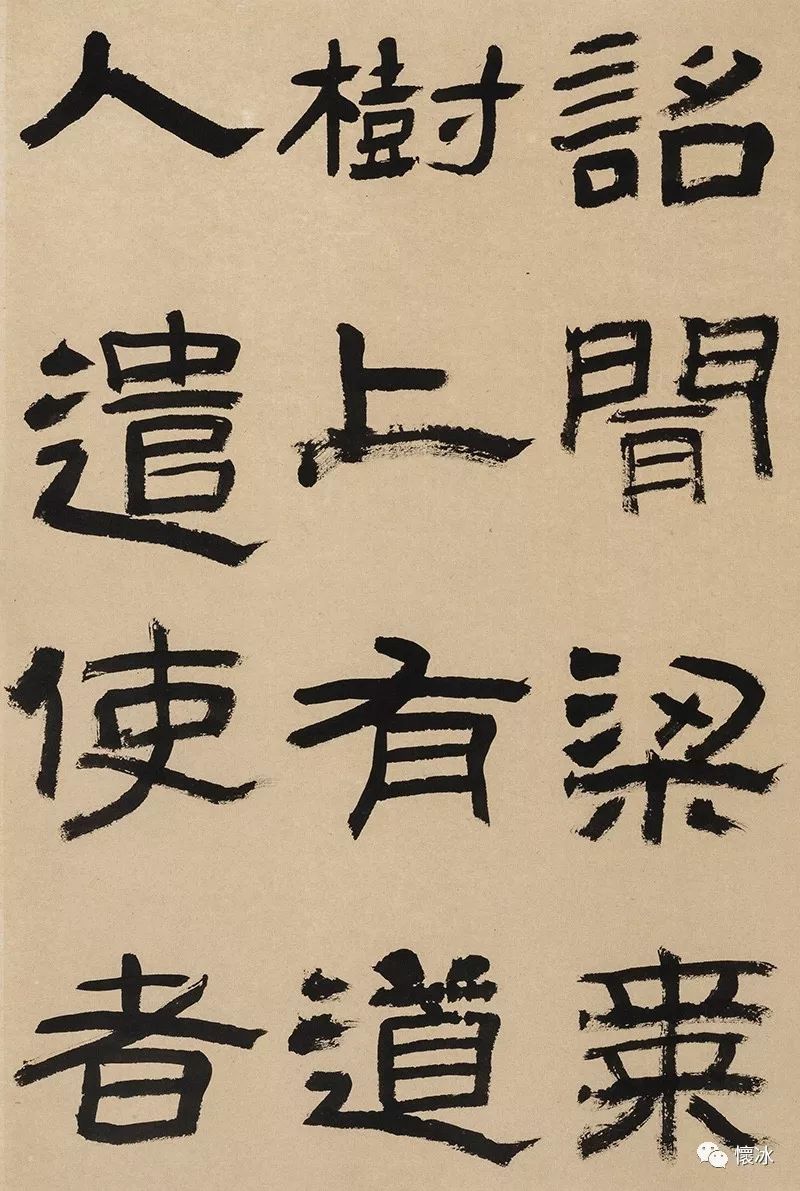 詔聞梁棗
樹上有道
人遣使者
懷冰